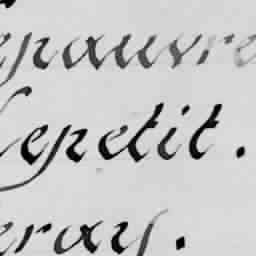 epauvre
Lepetit.
eray.